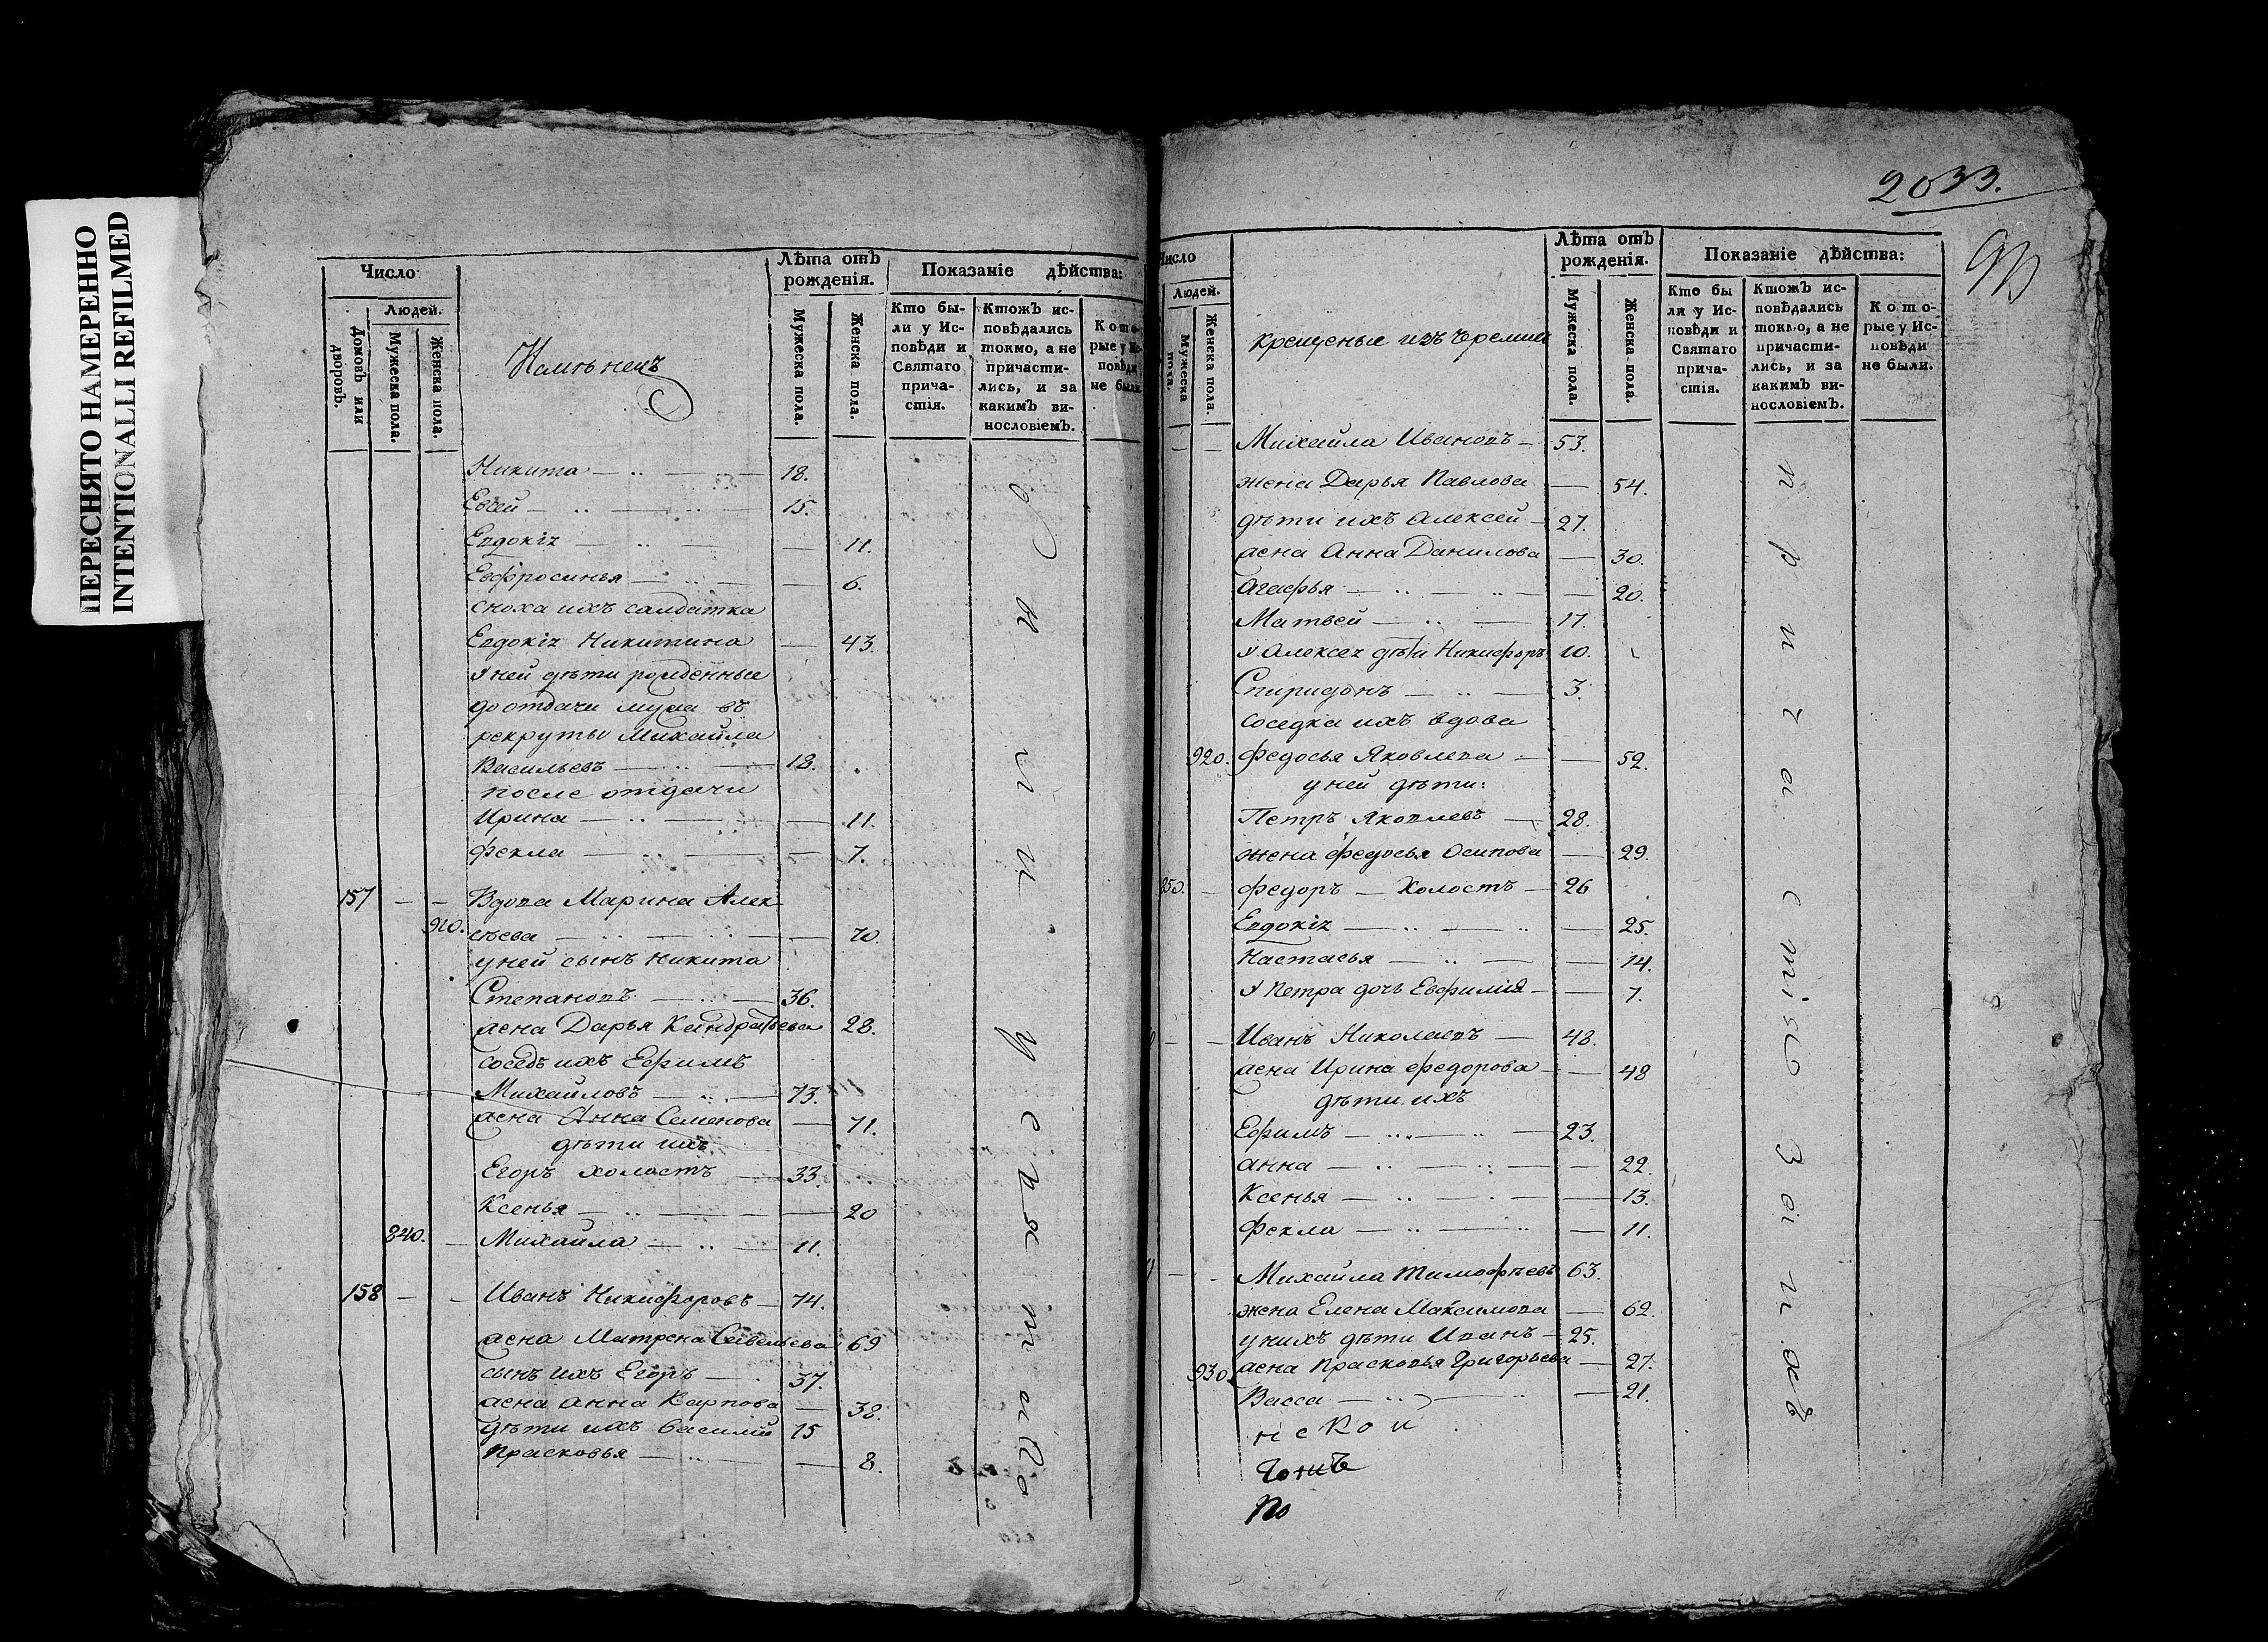 ПЕРЕСНЯТО НАМЕРЕННО
INTENTIONALLI REFILMED
Число
Людей.
Домовъ или дворовъ.
Мужеска пола.
Женска пола.
Лѣта отъ рожденія.
Мужеска пола.
Женска пола.
Показаніе дѣйства:
Кто были у Исповѣди и Святаго причастія.
Ктожъ исповѣдались токмо, а не причастились, и за какимъ винословіемъ.
Которые у Исповѣди не были.
Никита 18.
Евсей 15.
Евдокія 11.
Евфросинья 6.
сноха ихъ салдатка
Евдокія Никитина 43.
у ней дѣти рожденные
до отдачи мужа въ
рекруты Михайла
Васильевъ 18.
после отдачи
Ирина 11.
Фекла 7.
157 Вдова Марина Алек
910. сѣева 70.
у ней сынъ Никита
Степановъ 36.
жена Дарья Кандратьева 28.
соседъ ихъ Ефимъ
Михайловъ 73.
жена Анна Семенова 71.
дѣти ихъ
Егоръ холостъ 33.
Ксенья 20
840. Михайла 11.
158 Иванъ Никифоровъ 74.
жена Матрена Савельева 69
сынъ ихъ Егоръ 37.
жена Анна Карпова 38.
дѣти ихъ Василій 15
Прасковья 8.
2033.
Число
Людей.
Мужеска пола.
Женска пола.
крещеные изъ черемисъ
Лѣта отъ рожденія.
Мужеска пола.
Женска пола.
Показаніе дѣйства:
Кто были у Исповѣди и Святаго причастія.
Ктожъ исповѣдались токмо, а не причастились, и за какимъ винословіемъ.
Которые у Исповѣди не были.
Михайла Ивановъ 53.
жена Дарья Павлова 54.
дѣти ихъ Алексей 27.
жена Анна Данилова 30.
Агафья 20.
Матвей 17.
у Алексея дѣти Никифоръ 10.
Спиридонъ 3.
соседка ихъ вдова
920. Федосья Яковлева 52.
у ней дѣти:
Петръ Яковлевъ 28.
жена Федосья Осипова 29.
850. Федоръ Холостъ 26
Евдокія 25.
Настасья 14.
у Петра дочь Евфимія 7.
Иванъ Николаевъ 48.
жена Ирина Федорова 48
дѣти ихъ
Ефимъ 23.
Анна 22.
Ксенья 13.
Фекла 11.
Михайла Тимофѣевъ 63.
жена Елена Максимова 62.
у нихъ дѣти Иванъ 25.
930. жена Прасковья Григорьева 27.
Васса 21.
нской
По